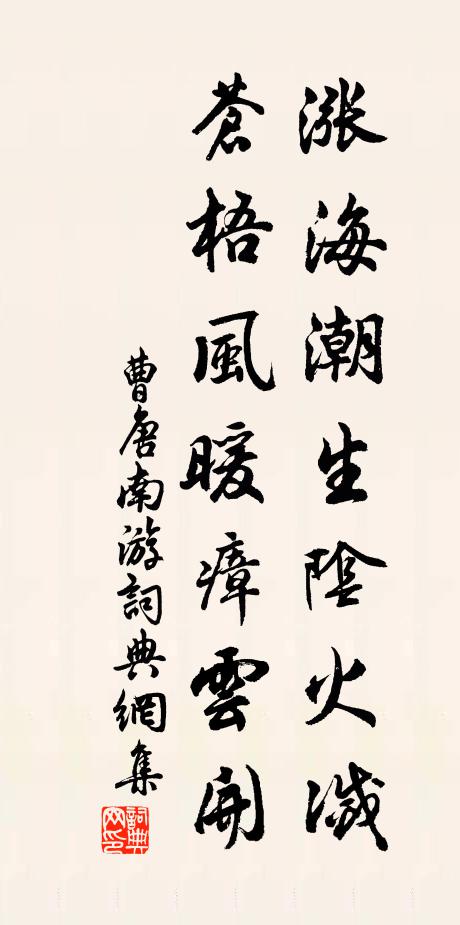 涨海潮生陰火滅
蒼梧風暖瘴雲開
曹唐南游詞典網集
詞典网印